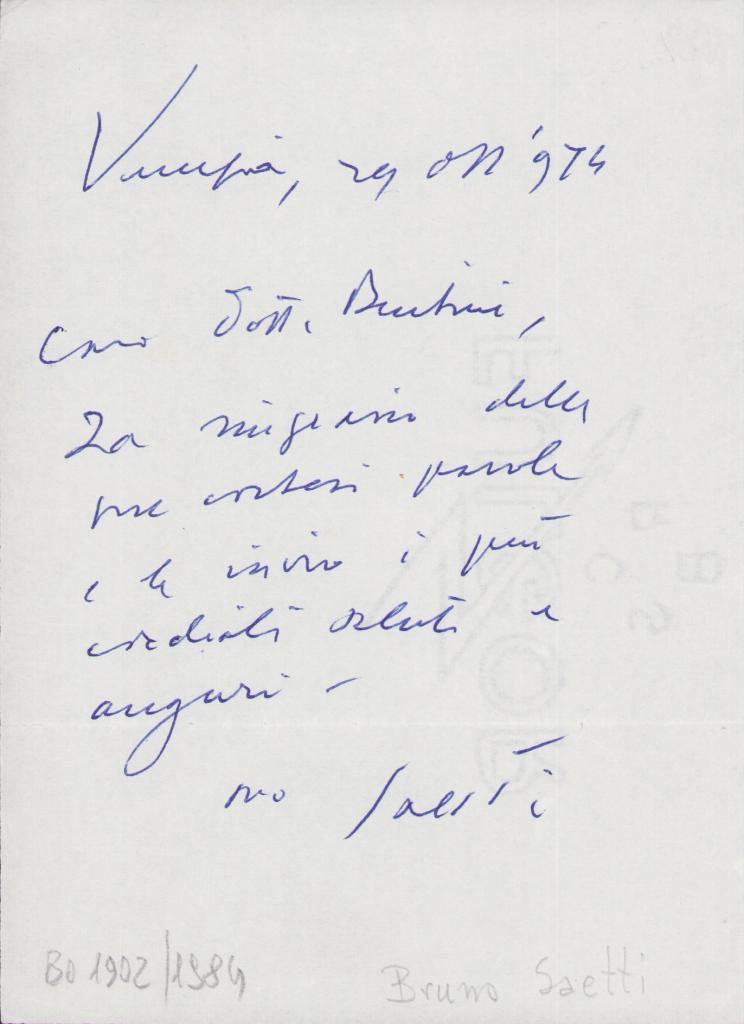 Venezia, 29 ott '974
Caro Dott.
La ringrazio delle
sue cortesi parole
e le invio i più
cordiali saluti e
auguri -
suo Saetti
Bo 1902/1984 Bruno Saetti